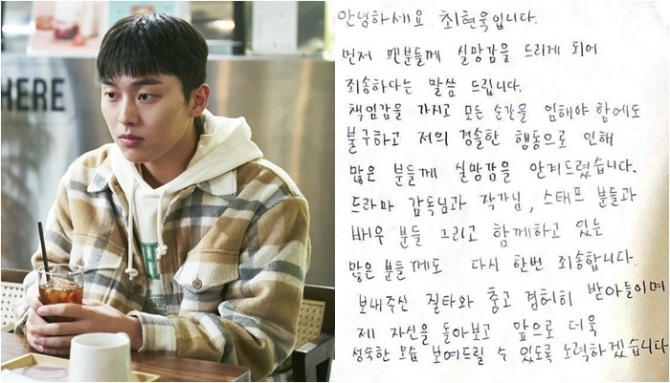 HERE
안녕하세요 최현욱입니다.
먼저 팬분들께 실망감을 드리게 되어
죄송하다는 말씀 드립니다.
책임감을 가지고 모든 순간을 임해야 함에도
불구하고 저의 경솔한 행동으로 인해
많은 분들께 실망감을 안겨드렸습니다.
드라마 감독님과 작가님, 스태프 분들과
배우 분들 그리고 함께하고 있는
많은 분들께도 다시 한번 죄송합니다.
보내주신 질타와 충고 겸허히 받아들이며
제 자신을 돌아보고 앞으로 더욱
성숙한 모습 보여드릴 수 있도록 노력하겠습니다